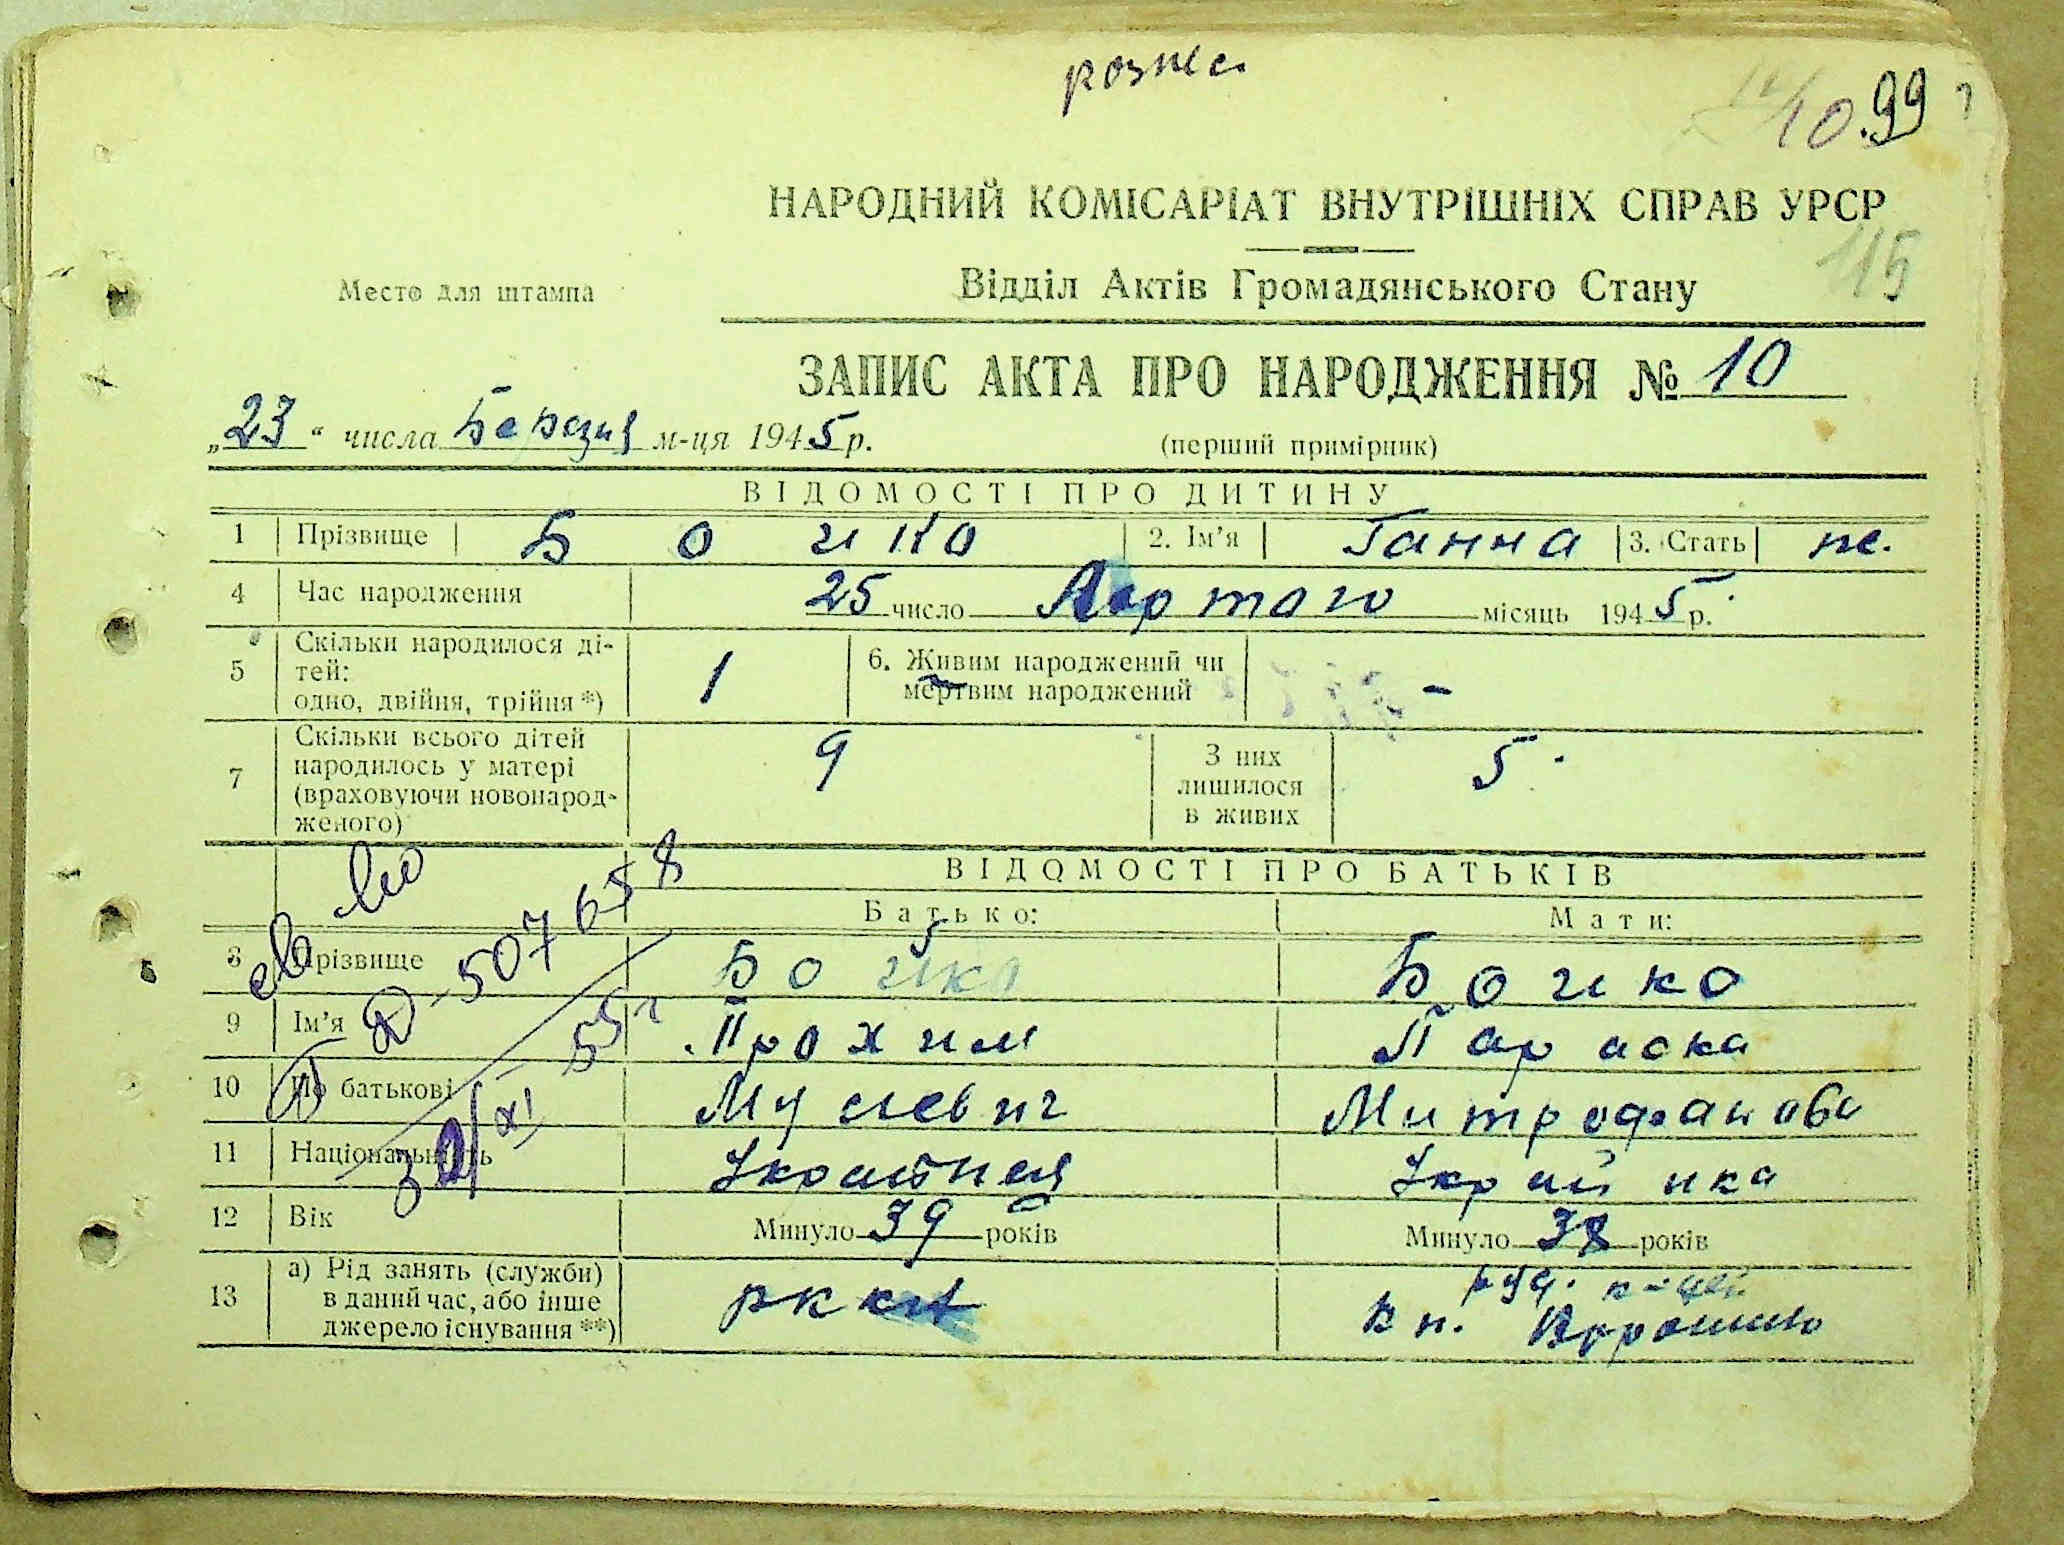 розпис.
10.99
НАРОДНИЙ КОМІСАРІАТ ВНУТРІШНІХ СПРАВ УРСР
115
Место для штампа
Відділ Актів Громадянського Стану
ЗАПИС АКТА ПРО НАРОДЖЕННЯ № 10
„23“ числа Березня м-ця 1945 р. (перший примірник)
ВІДОМОСТІ ПРО ДИТИНУ
1 Прізвище Бойко 2. Ім'я Ганна 3. Стать ж.
4 Час народження 25 число Лютого місяць 1945 р.
5 Скільки народилося ді-
тей:
одно, двійня, трійня *) 1
6. Живим народжений чи
мертвим народжений –
7 Скільки всього дітей
народилось у матері
(враховуючи новонарод-
женого) 9
З них
лишилося
в живих 5
ВІДОМОСТІ ПРО БАТЬКІВ
Батько: Мати:
8 Прізвище Бойко Бойко
9 Ім'я Прохим Параска
10 По батькові Мусієвич Митрофанова
11 Національність Українец Українка
12 Вік Минуло 39 років Минуло 38 років
13 а) Рід занять (служби)
в даний час, або інше
джерело існування **) РККА
507658